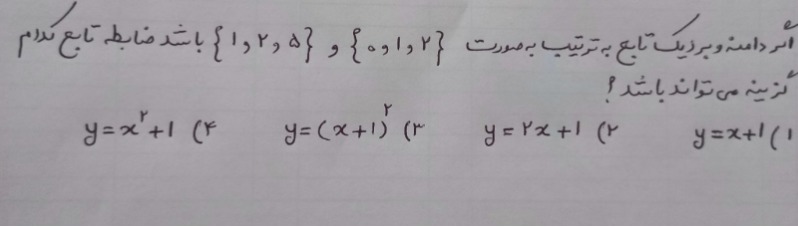 اگر دامنه و برد یک تابع به ترتیب به صورت {۰,۱,۲} و {۱,۲,۵} باشد ضابطه تابع کدام
گزینه می تواند باشد؟
۱) y=x+1 ۲) y=۲x+1 ۳) y=(x+1)^۲ ۴) y=x^۲+1